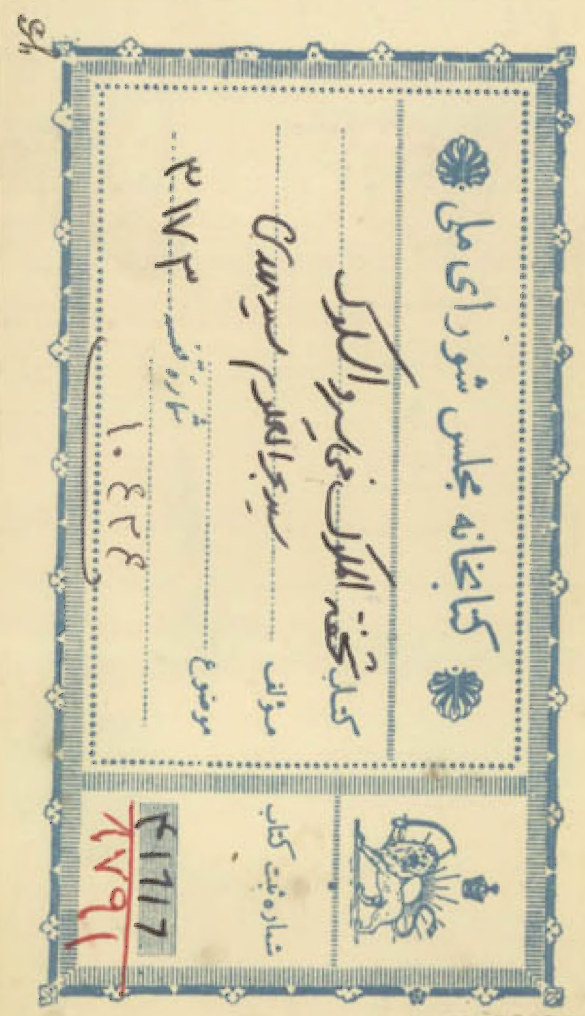 کتابخانه مجلس شورای ملی
کتاب تحفة الملوک فی السیر والسلوک
مؤلف سید بحرالعلوم سید مهدی
موضوع
شماره قفسه ۳۱۷۳
۱۰۴۲۴
شماره ثبت کتاب